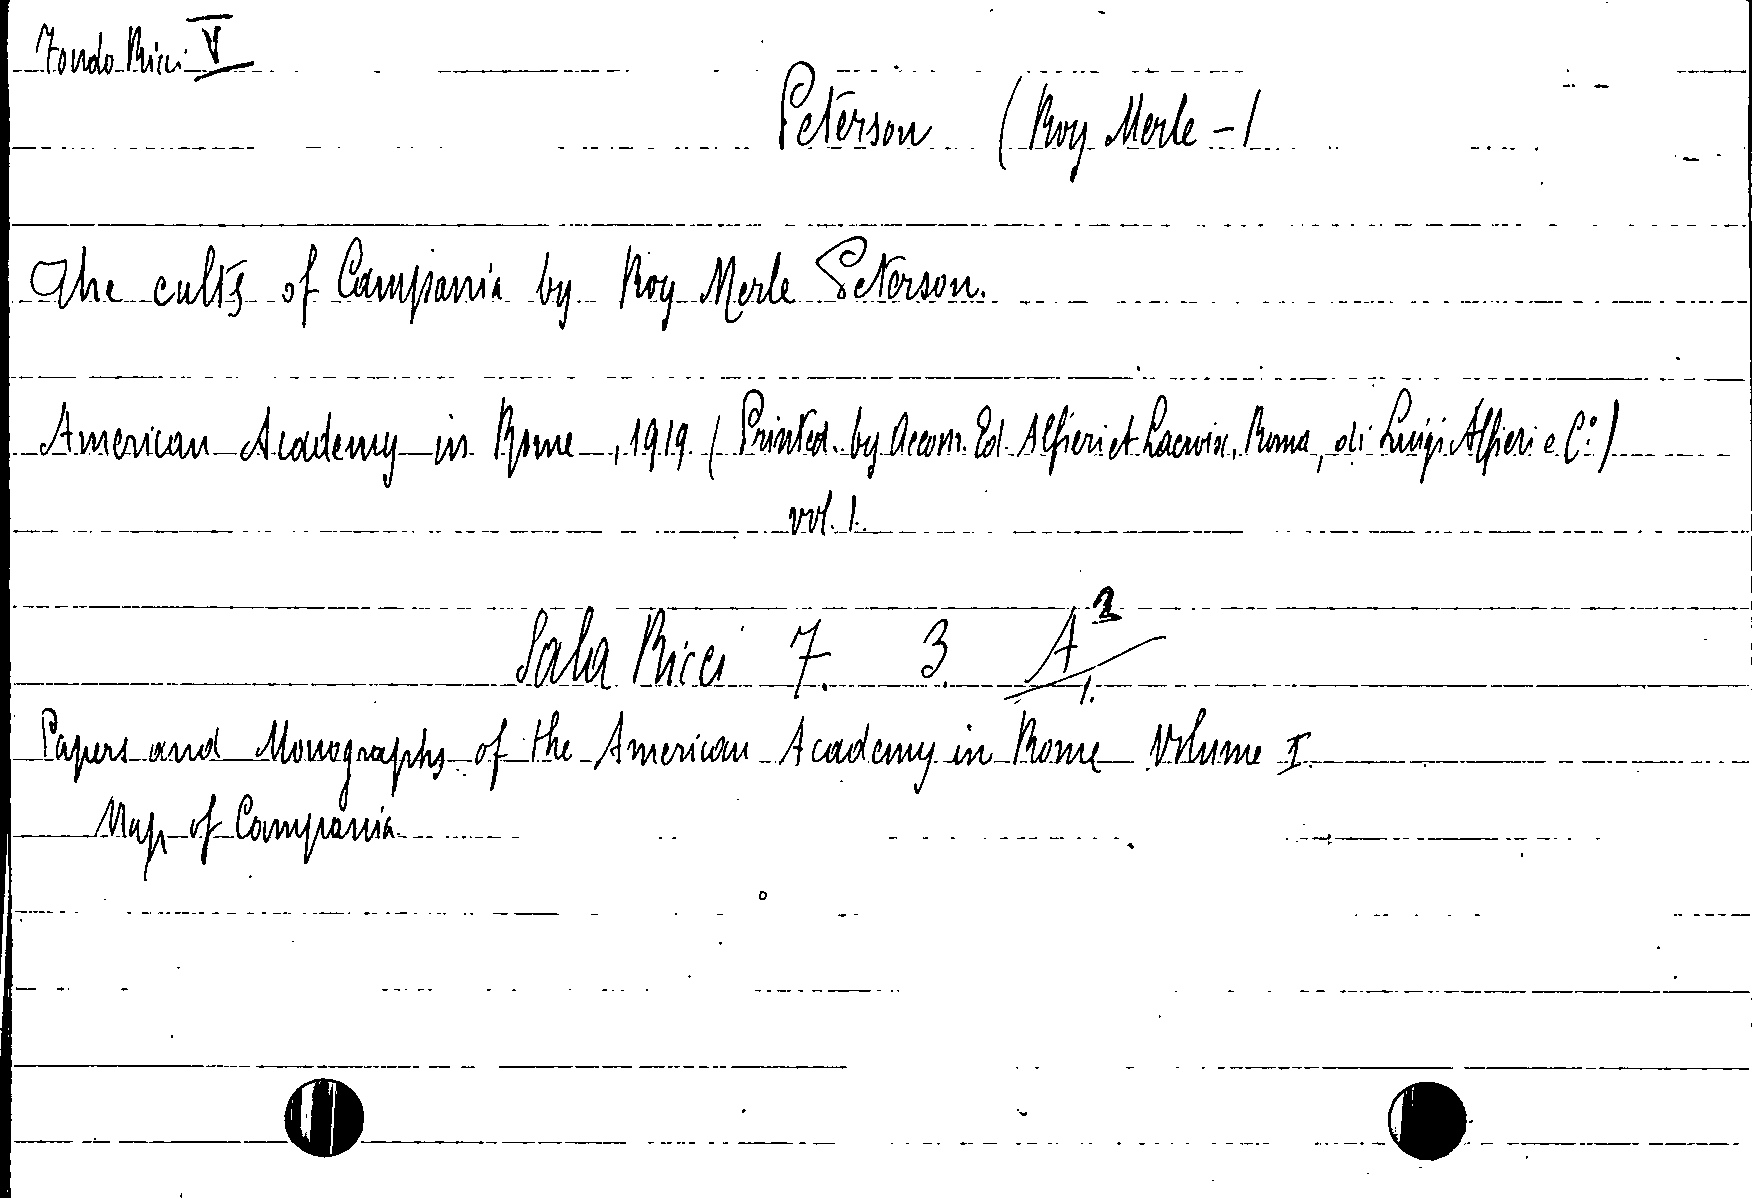 Fondo Ricci V
Peterson (Roy Merle -)
The cults of Campania by Roy Merle Peterson.
American Academy in Rome, 1919. (Printed by Accom. Ed. Alfieri et Lacroix, Roma, di Luigi Alfieri e C.º)
vol. 1.
Sala Ricci 7. 3. A²/1.
Papers and Monographs of the American Academy in Rome Volume I.
Map of Campania